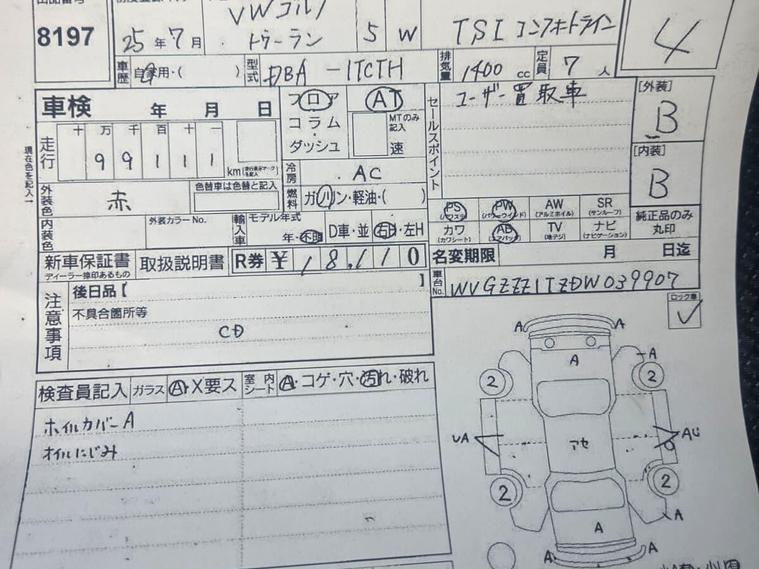 8197
25年7月
VWゴルフ
トゥーラン
5 W
TSI コンフォートライン
4
車歴 自家用・( )
型式 DBA - 1TCTH
排気量 1400 cc
定員 7 人
車検 年 月 日
フロア
コラム
ダッシュ
AT
MTのみ記入
速
セールスポイント
ユーザー買取車
[外装]
B
[内装]
B
純正品のみ
丸印
走行
十 万 千 百 十 一
99111
km
冷房 AC
燃料 ガソリン・軽油・( )
現在色を記入→
外装色 赤
色替車は色替と記入
内装色
外装カラーNo.
輸入車
モデル年式
年・不明
D車・並
右H・左H
PS (パワステ)
PW (パワーウインド)
AW (アルミホイル)
SR (サンルーフ)
カワ (カワシート)
AB (エアバック)
TV (地デジ)
ナビ (ナビゲーション)
新車保証書
ディーラー捺印あるもの
取扱説明書
R券 ¥ 18,110
名変期限 月 日迄
車台No. WVGZZZ1TZDW039907
ロック車
注意事項
後日品【 】
不具合箇所等
CD
検査員記入
ガラス
A・X要ス
室内シート
A・コゲ・穴・汚れ・破れ
ホイルカバーA
オイルにじみ
A A
A A
2 2
UA アセ AU
2 2
A A
A A